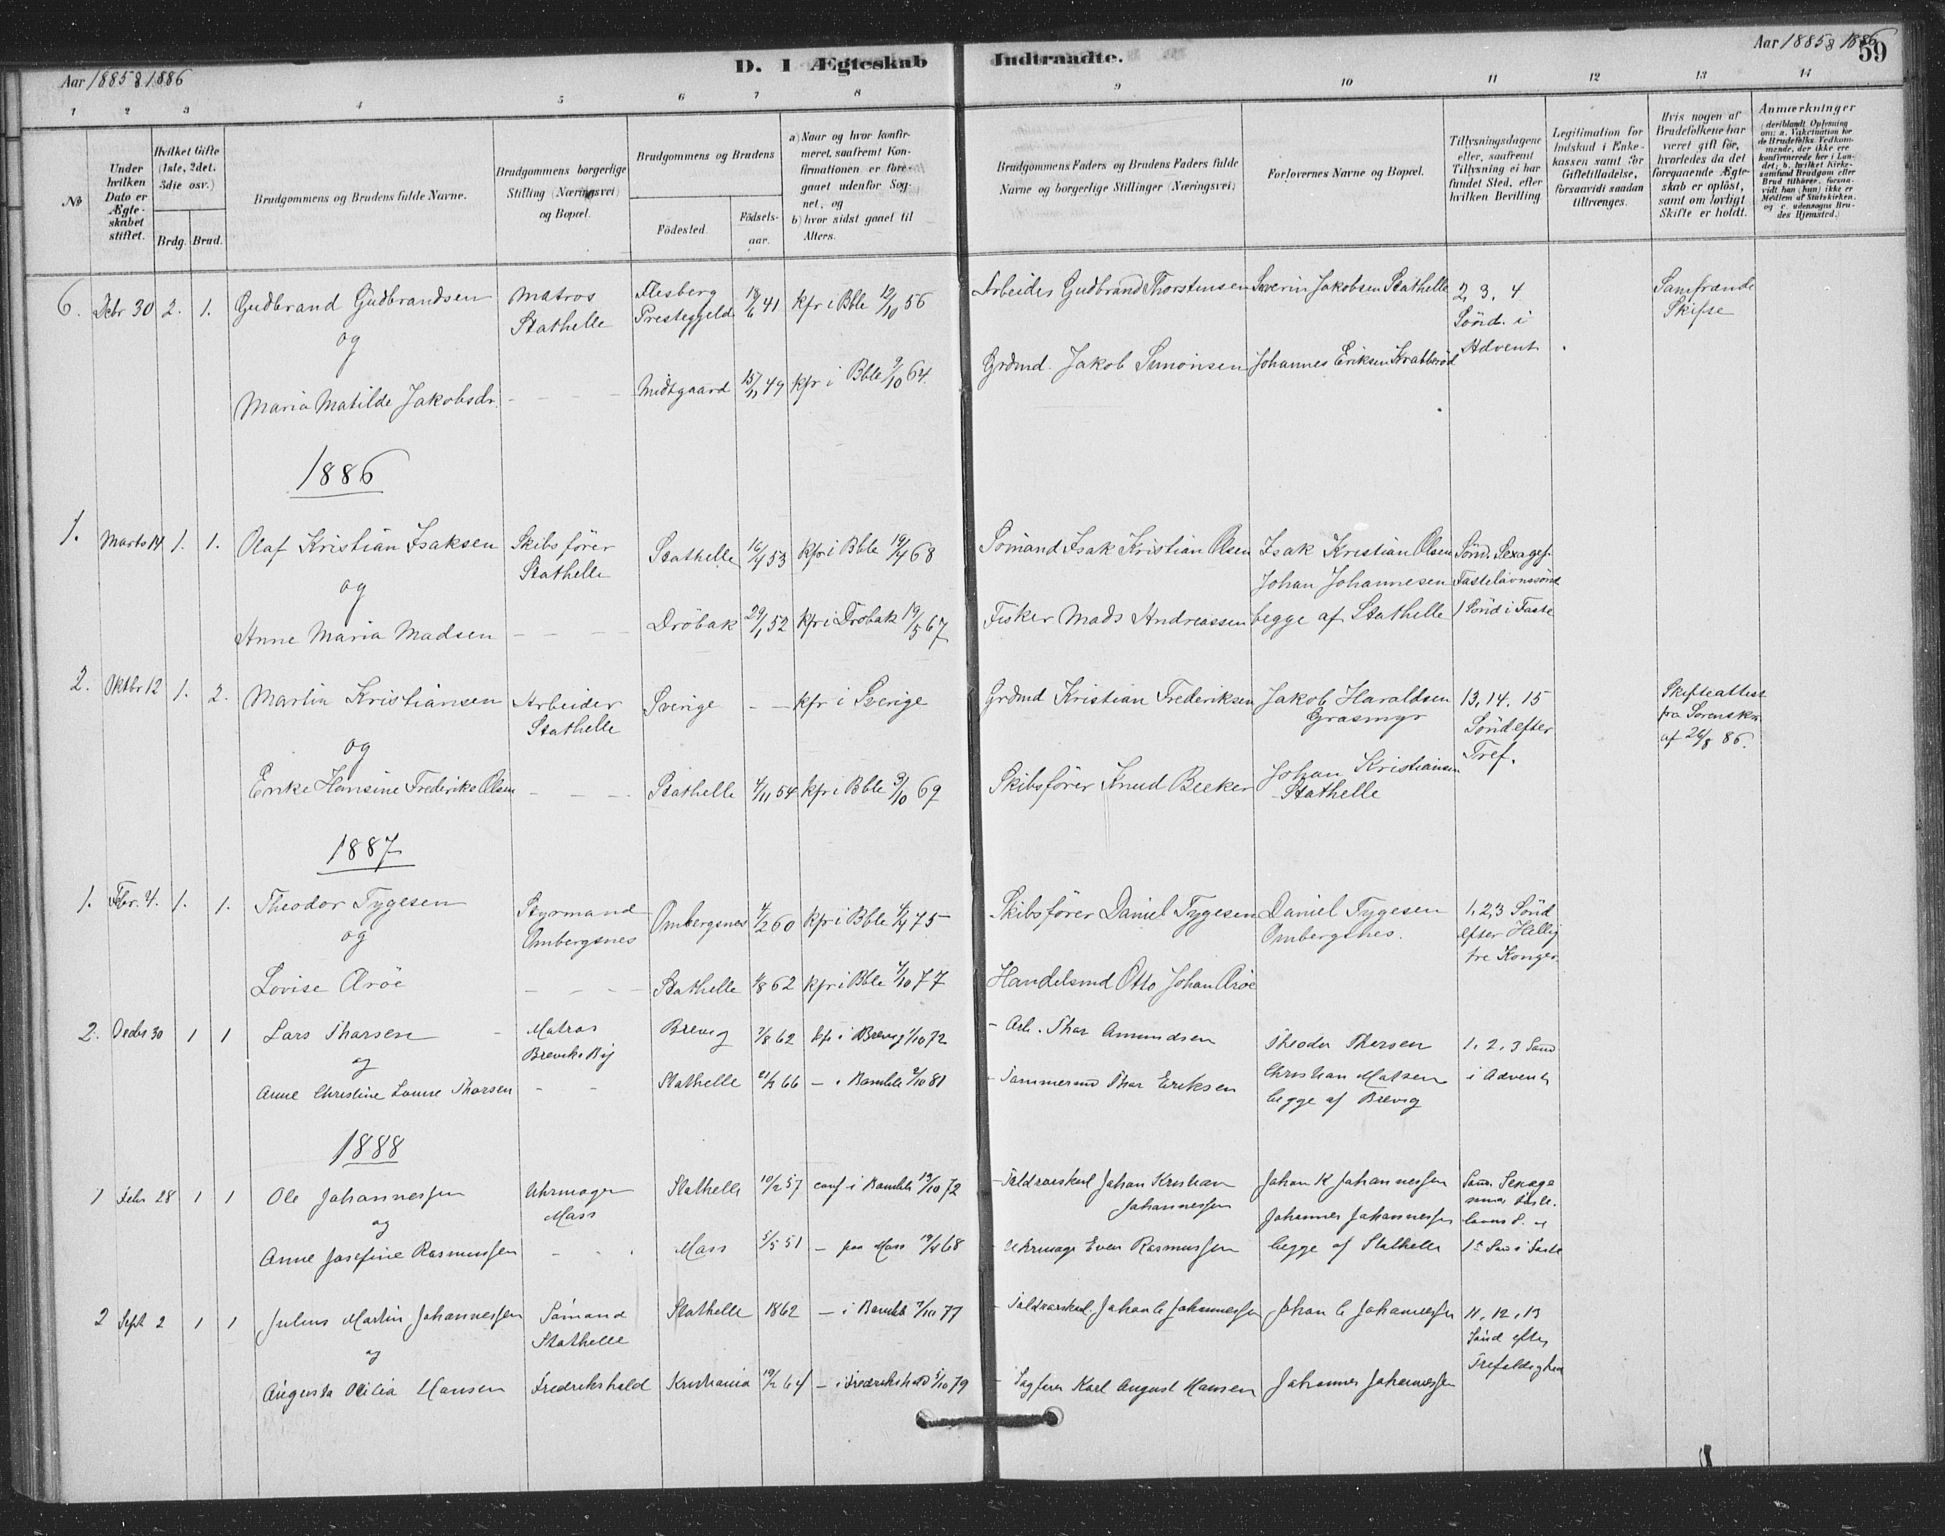 Aar 1885 & 1886
D. I Ægteskab Indtraadte.
Aar 1885 & 1886
59
1 2 3 4 5 6 7 8 9 10 11 12 13 14
№
Under hvilken Dato er Ægteskabet stiftet.
Hvilket Gifte (1ste, 2det, 3die osv.)
Brdg. Brud.
Brudgommens og Brudens fulde Navne.
Brudgommens borgerlige Stilling (Næringsvei) og Bopæl.
Brudgommens og Brudens
Födested.
Födselsaar.
a) Naar og hvor konfirmeret, saafremt Konfirmationen er foregaaet udenfor Sognet, og
b) hvor sidst gaaet til Alters.
Brudgommens Faders og Brudens Faders fulde Navne og borgerlige Stillinger (Næringsvei)
Forlovernes Navne og Bopæl.
Tillysningsdagene eller, saafremt Tillysning ei har fundet Sted, efter hvilken Bevilling.
Legitimation for Indskud i Enkekassen samt for Giftetilladelse, forsaavidt saadan tiltrænges.
Hvis nogen af Brudefolkene har været gift før, hvorledes da det foregaaende Ægteskab er oplöst, samt om lovligt Skifte er holdt.
Anmærkninger
(deriblandt Oplysning om: a. Vakcination for de Brudefolks Vedkommende, der ikke ere konfirmerede her i Landet; b. hvilket Kirkesamfund Brudgom eller Brud tilhörer, forsaavidt han (hun) ikke er Medlem af Statskirken, og c. udensogns Brudes Hjemsted.)
6. Decbr 30 2. 1. Gudbrand Gudbrandsen
og
Maria Matilde Jakobsdr.
Matros
Stathelle
Flesberg
Presteggeld 18/6 41 kfr i Bble 12/10 56
Midtgaard 15/11 49 kfr i Bble 9/10 64.
Arbeider Gudbrand Thorstensen
Grdmd. Jakob Simonsen
Severin Jakobsen Stathelle
Johannes Eriksen Krabberød
2, 3, 4
Sönd. i
Advent
Samfrænde
Skifte
1886
1. Marts 14 1. 1. Olaf Kristian Isaksen
og
Anne Maria Madsen
Skibsfører
Stathelle
Stathelle 16/4 53 kfr i Bble 19/4 68
Dröbak 29/1 52 kfr i Dröbak 19/5 67
Sömand Isak Kristian Olsen
Fisker Mads Andreassen
Isak Kristian Olsen
Johan Johannesen
begge af Stathelle
Sönd. Sexages.
Fastelavnssönd
1 Sönd i Faste
2. Oktbr 12 1. 2. Martin Kristiansen
og
Enke Hansine Frederike Olsen
Arbeider
Stathelle
Sverige - - kfr i Sverige
Stathelle 4/11 54 kfr i Bble 3/10 69
Grdmd Kristian Frederiksen
Skibsfører Knud Becker
Jakob Haraldsen
Grasmyr
Johan Kristiansen
Stathelle
13, 14. 15
Sönd efter
Tref.
Skifteattest
fra Sorenskr.
af 26/8 86.
1887
1. Febr. 4. 1. 1. Theodor Tygesen
og
Lovise Aröe
Styrmand
Ombergsnes
Ombergsnes 4/2 60 kfr i Bble 4/4 75
Stathelle 4/8 62 kfr i Bble 7/10 77
Skibsfører Daniel Tygesen
Handelsmd Otto Johan Aröe
Daniel Tygesen
Ombergsnes.
1, 2, 3 Sönd
efter Hellig
tre Konger
2. Decbr 30 1 1 Lars Tharsen
og
Anne Christine Lovise Tharsen
Matros
Breviks By
Brevig 7/8 62 kfr i Brevig 1/10 72
Stathelle 21/2 66 — i Bamble 2/10 81
- Arb. Thor Amundsen
- Tømmermd Thor Eriksen
Theodor Thorsen
Christian Matsen
begge af Brevig
1, 2, 3 Sönd
i Advent
1888
1 Febr 28 1 1 Ole Johannessen
og
Anne Josefine Rasmussen
Uhrmager
Mass
Stathelle 10/2 57 conf i Bamble 19/10 72
Mass 5/5 51 — paa Moss 19/4 68
- Toldroerskarl Johan Kristian
Johannessen
Uhrmager Even Rasmussen
Johan K Johannessen
Johannes Johannessen
begge af Stathelle
1ste Sönd i Faste
2 Sept 2 1 1 Julius Martin Johannessen
og
Augusta Otilia Hansen
Sömand
Stathelle
Fredrikshald
Stathelle 1862 — i Bamble 7/10 77
Kristiania 19/2 64 — i Fredrikshald 5/10 79
- Toldroerskarl Johan C Johannessen
- Sagfører Karl August Hansen
Johan C Johannessen
Johannes Johannessen
11, 12, 13
Sönd efter
Trefoldighed